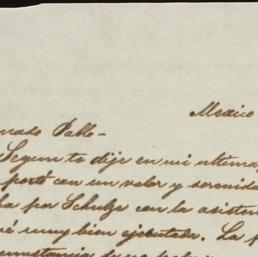 Mexico
Pablo-
Segun te dije en mi ultima,
portó con un valor y serenida
por Schulze con la asisten
muy bien ejecutada. La